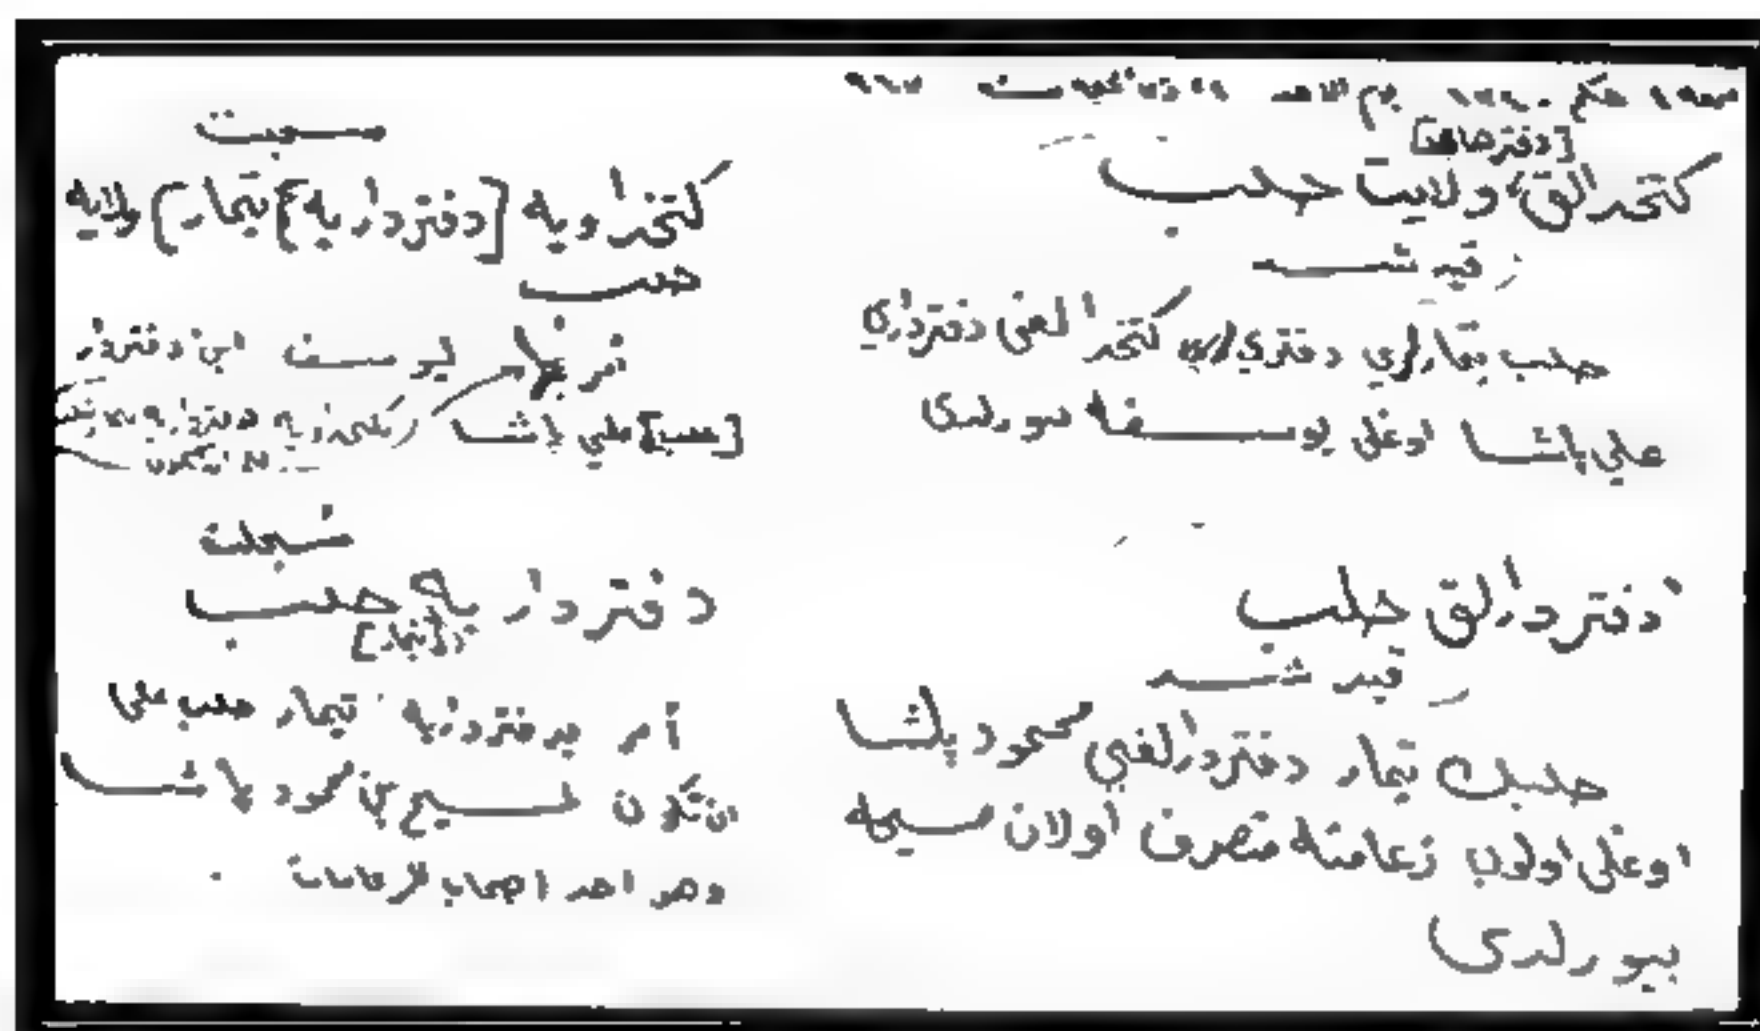 حكم ١٢٩٠ يوم الاحد ٩٦٧
[دفترخانه]
كتخدالق ولايت حلب
قيد شد
حلب تيمارلري دفتري كتخدالغى دفترداري
علي پاشا اوغلى يوسفه بيورلدى
دفتردارلق حلب
قيد شد
حلبك تيمار دفتردارلغي محمود پاشا
اوغلى اولوب زعامته متصرف اولان مسيحه
بيورلدى
سجلت
كتخداويه [دفترداريه] تيمار ولايه
حلب
أمر يوسف ابن دفتردار
[حلب] علي پاشا
سجلت
دفتردارية حلب
[تيمار]
أمر بدفتردارية تيمار حلب على
ان تكون لمسيح بن محمود پاشا
وهو احد اصحاب الزعامات